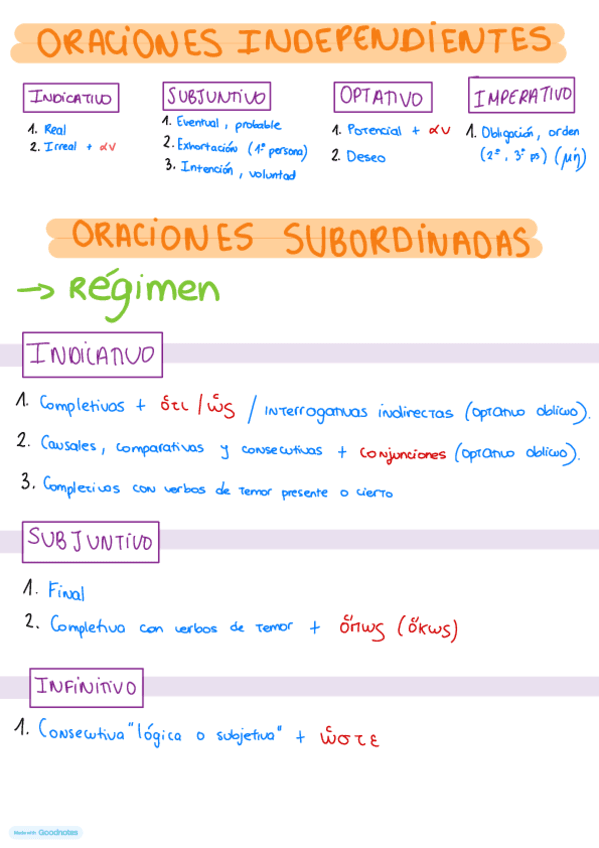 ORACIONES INDEPENDIENTES
INDICATIVO
1. Real
2. Irreal + αν
SUBJUNTIVO
1. Eventual, probable
2. Exhortación (1ª persona)
3. Intención, voluntad
OPTATIVO
1. Potencial + αν
2. Deseo
IMPERATIVO
1. Obligación, orden
(2ª, 3ª ps) (μή)
ORACIONES SUBORDINADAS
→ Régimen
INDICATIVO
1. Completivas + ὅτι / ὡς / interrogativas indirectas (optativo oblicuo).
2. Causales, comparativas y consecutivas + conjunciones (optativo oblicuo).
3. Completivas con verbos de temor presente o cierto
SUBJUNTIVO
1. Final
2. Completiva con verbos de temor + ὅπως (ὅκως)
INFINITIVO
1. Consecutiva "lógica o subjetiva" + ὥστε
Made with Goodnotes